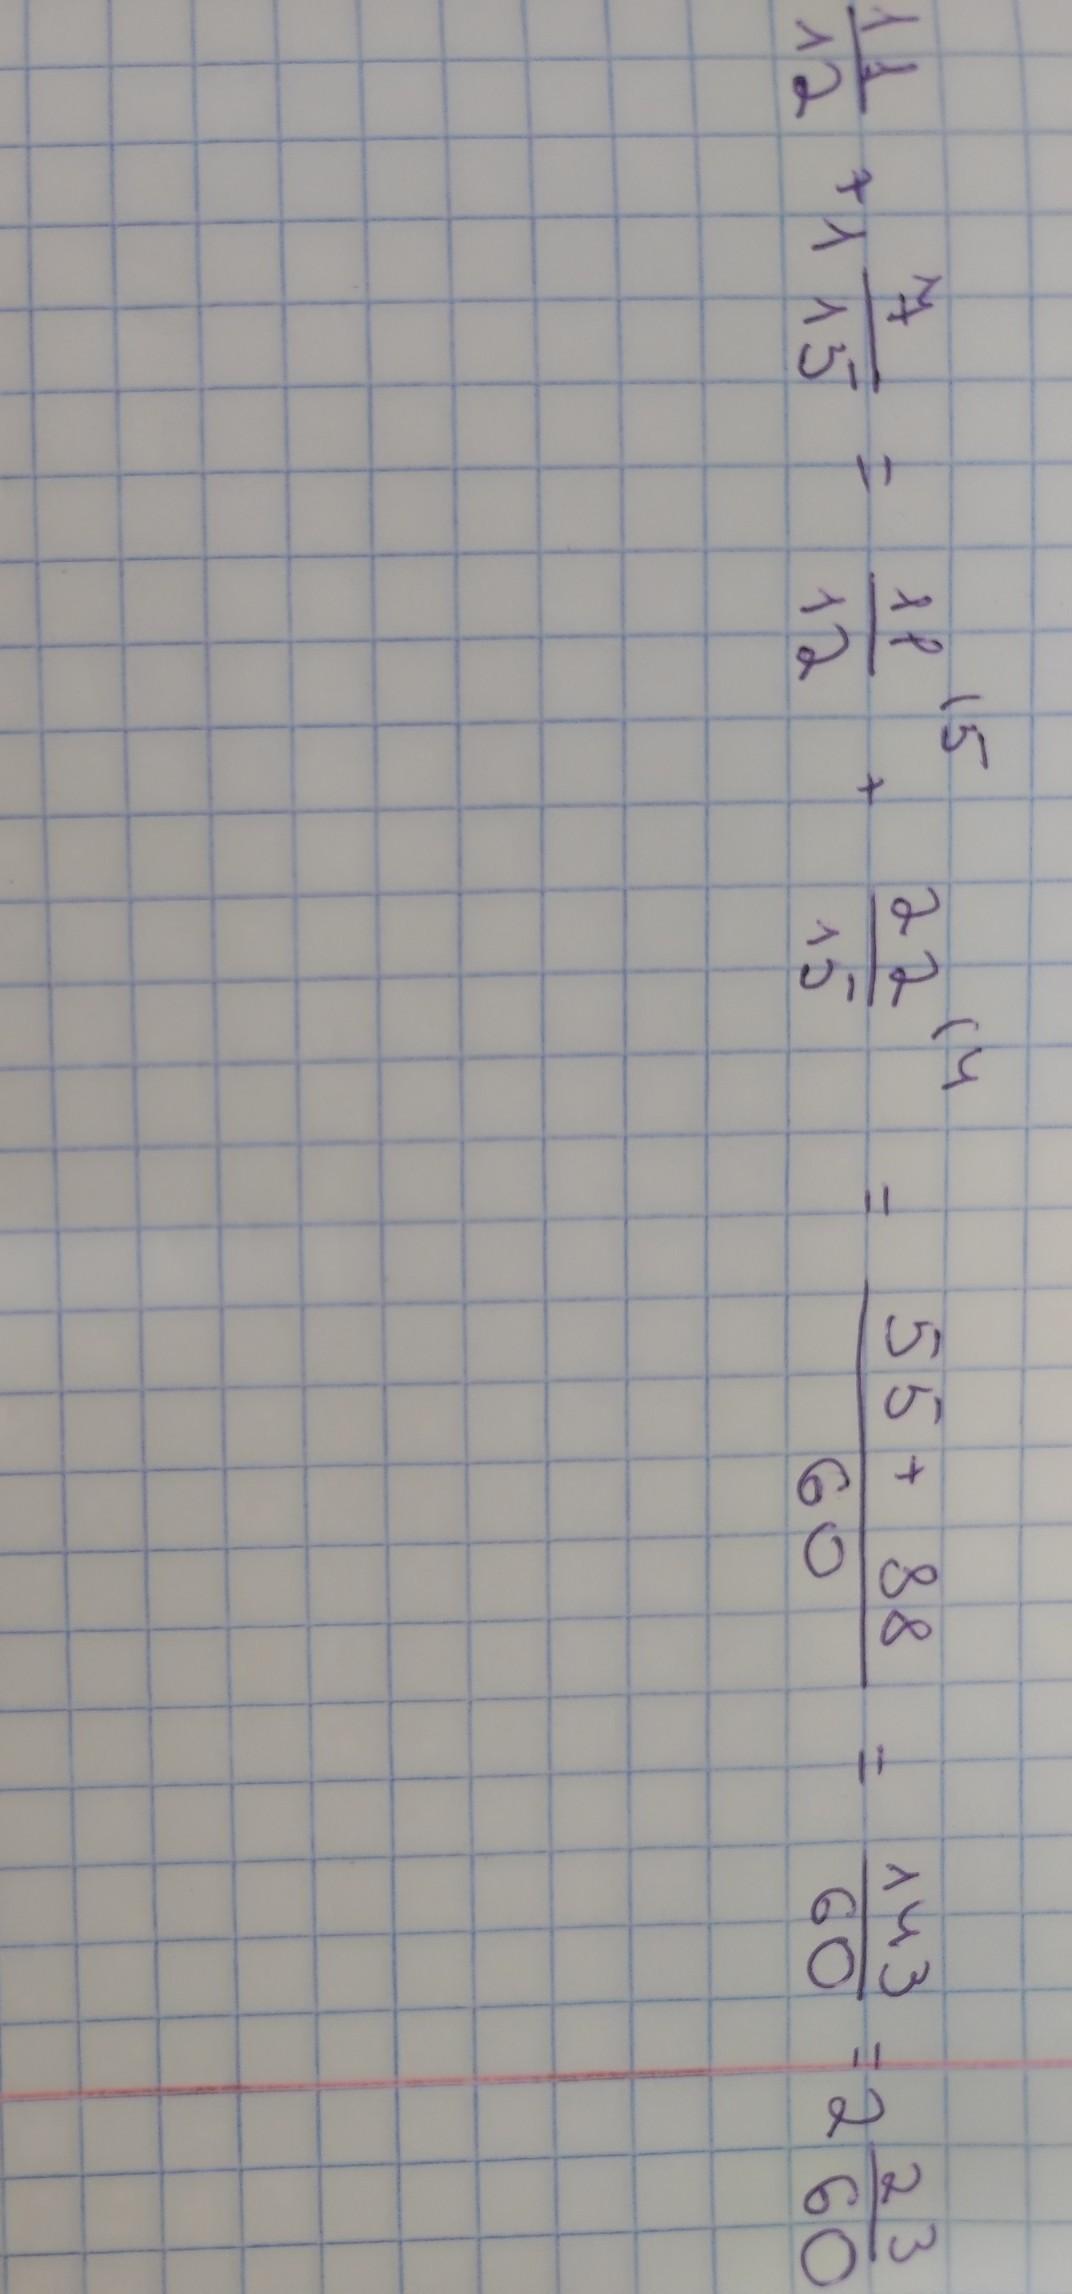 11/12 + 1 7/15 = 11/12 (5 + 22/15 (4 = (55 + 88)/60 = 143/60 = 2 23/60